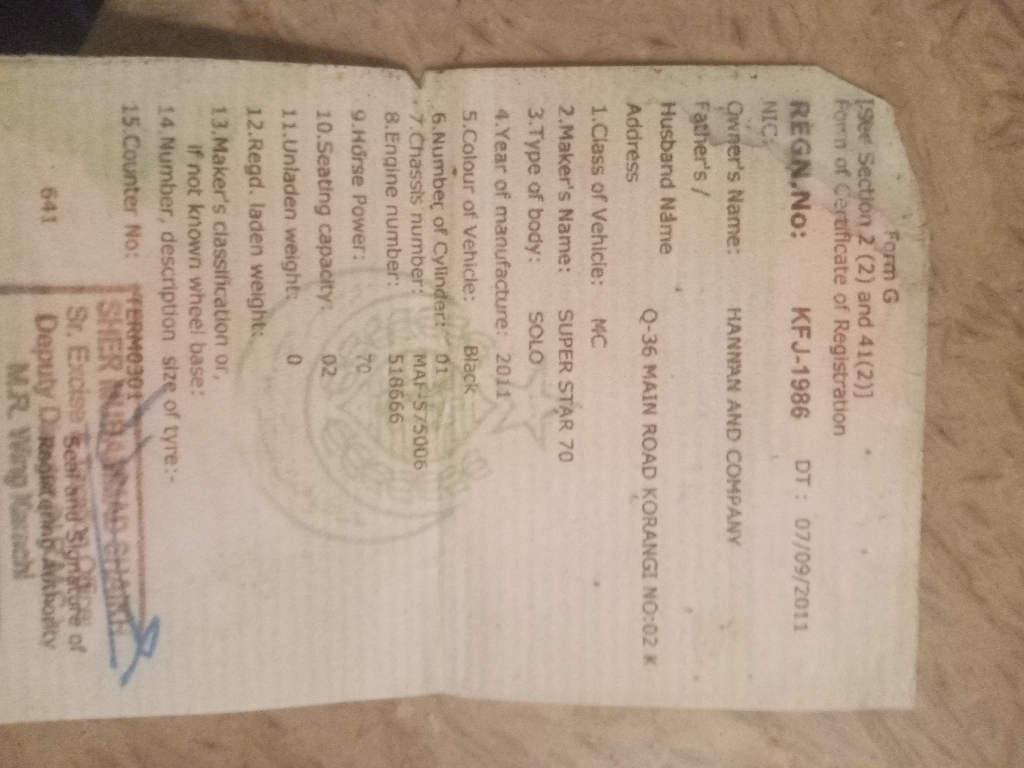 Form G
[See Section 2 (2) and 41(2)]
Form of Certificate of Registration
REGN.No: KFJ-1986 DT : 07/09/2011
NIC:
Owner's Name: HANNAN AND COMPANY
Father's /
Husband Name
Address Q-36 MAIN ROAD KORANGI NO:02 K
1.Class of Vehicle: MC
2.Maker's Name: SUPER STAR 70
3.Type of body: SOLO
4.Year of manufacture: 2011
5.Colour of Vehicle: Black
6.Number of Cylinder: 01
7.Chassis number: MAF-575006
8.Engine number: 518666
9.Horse Power: 70
10.Seating capacity: 02
11.Unladen weight: 0
12.Regd. laden weight:
13.Maker's classification or,
if not known wheel base:
14.Number, description size of tyre:-
15.Counter No: TERM0301
SHER
Sr. Excise
Seal and Signature of
641
Deputy
Registering Authority
M.R. Wing Karachi